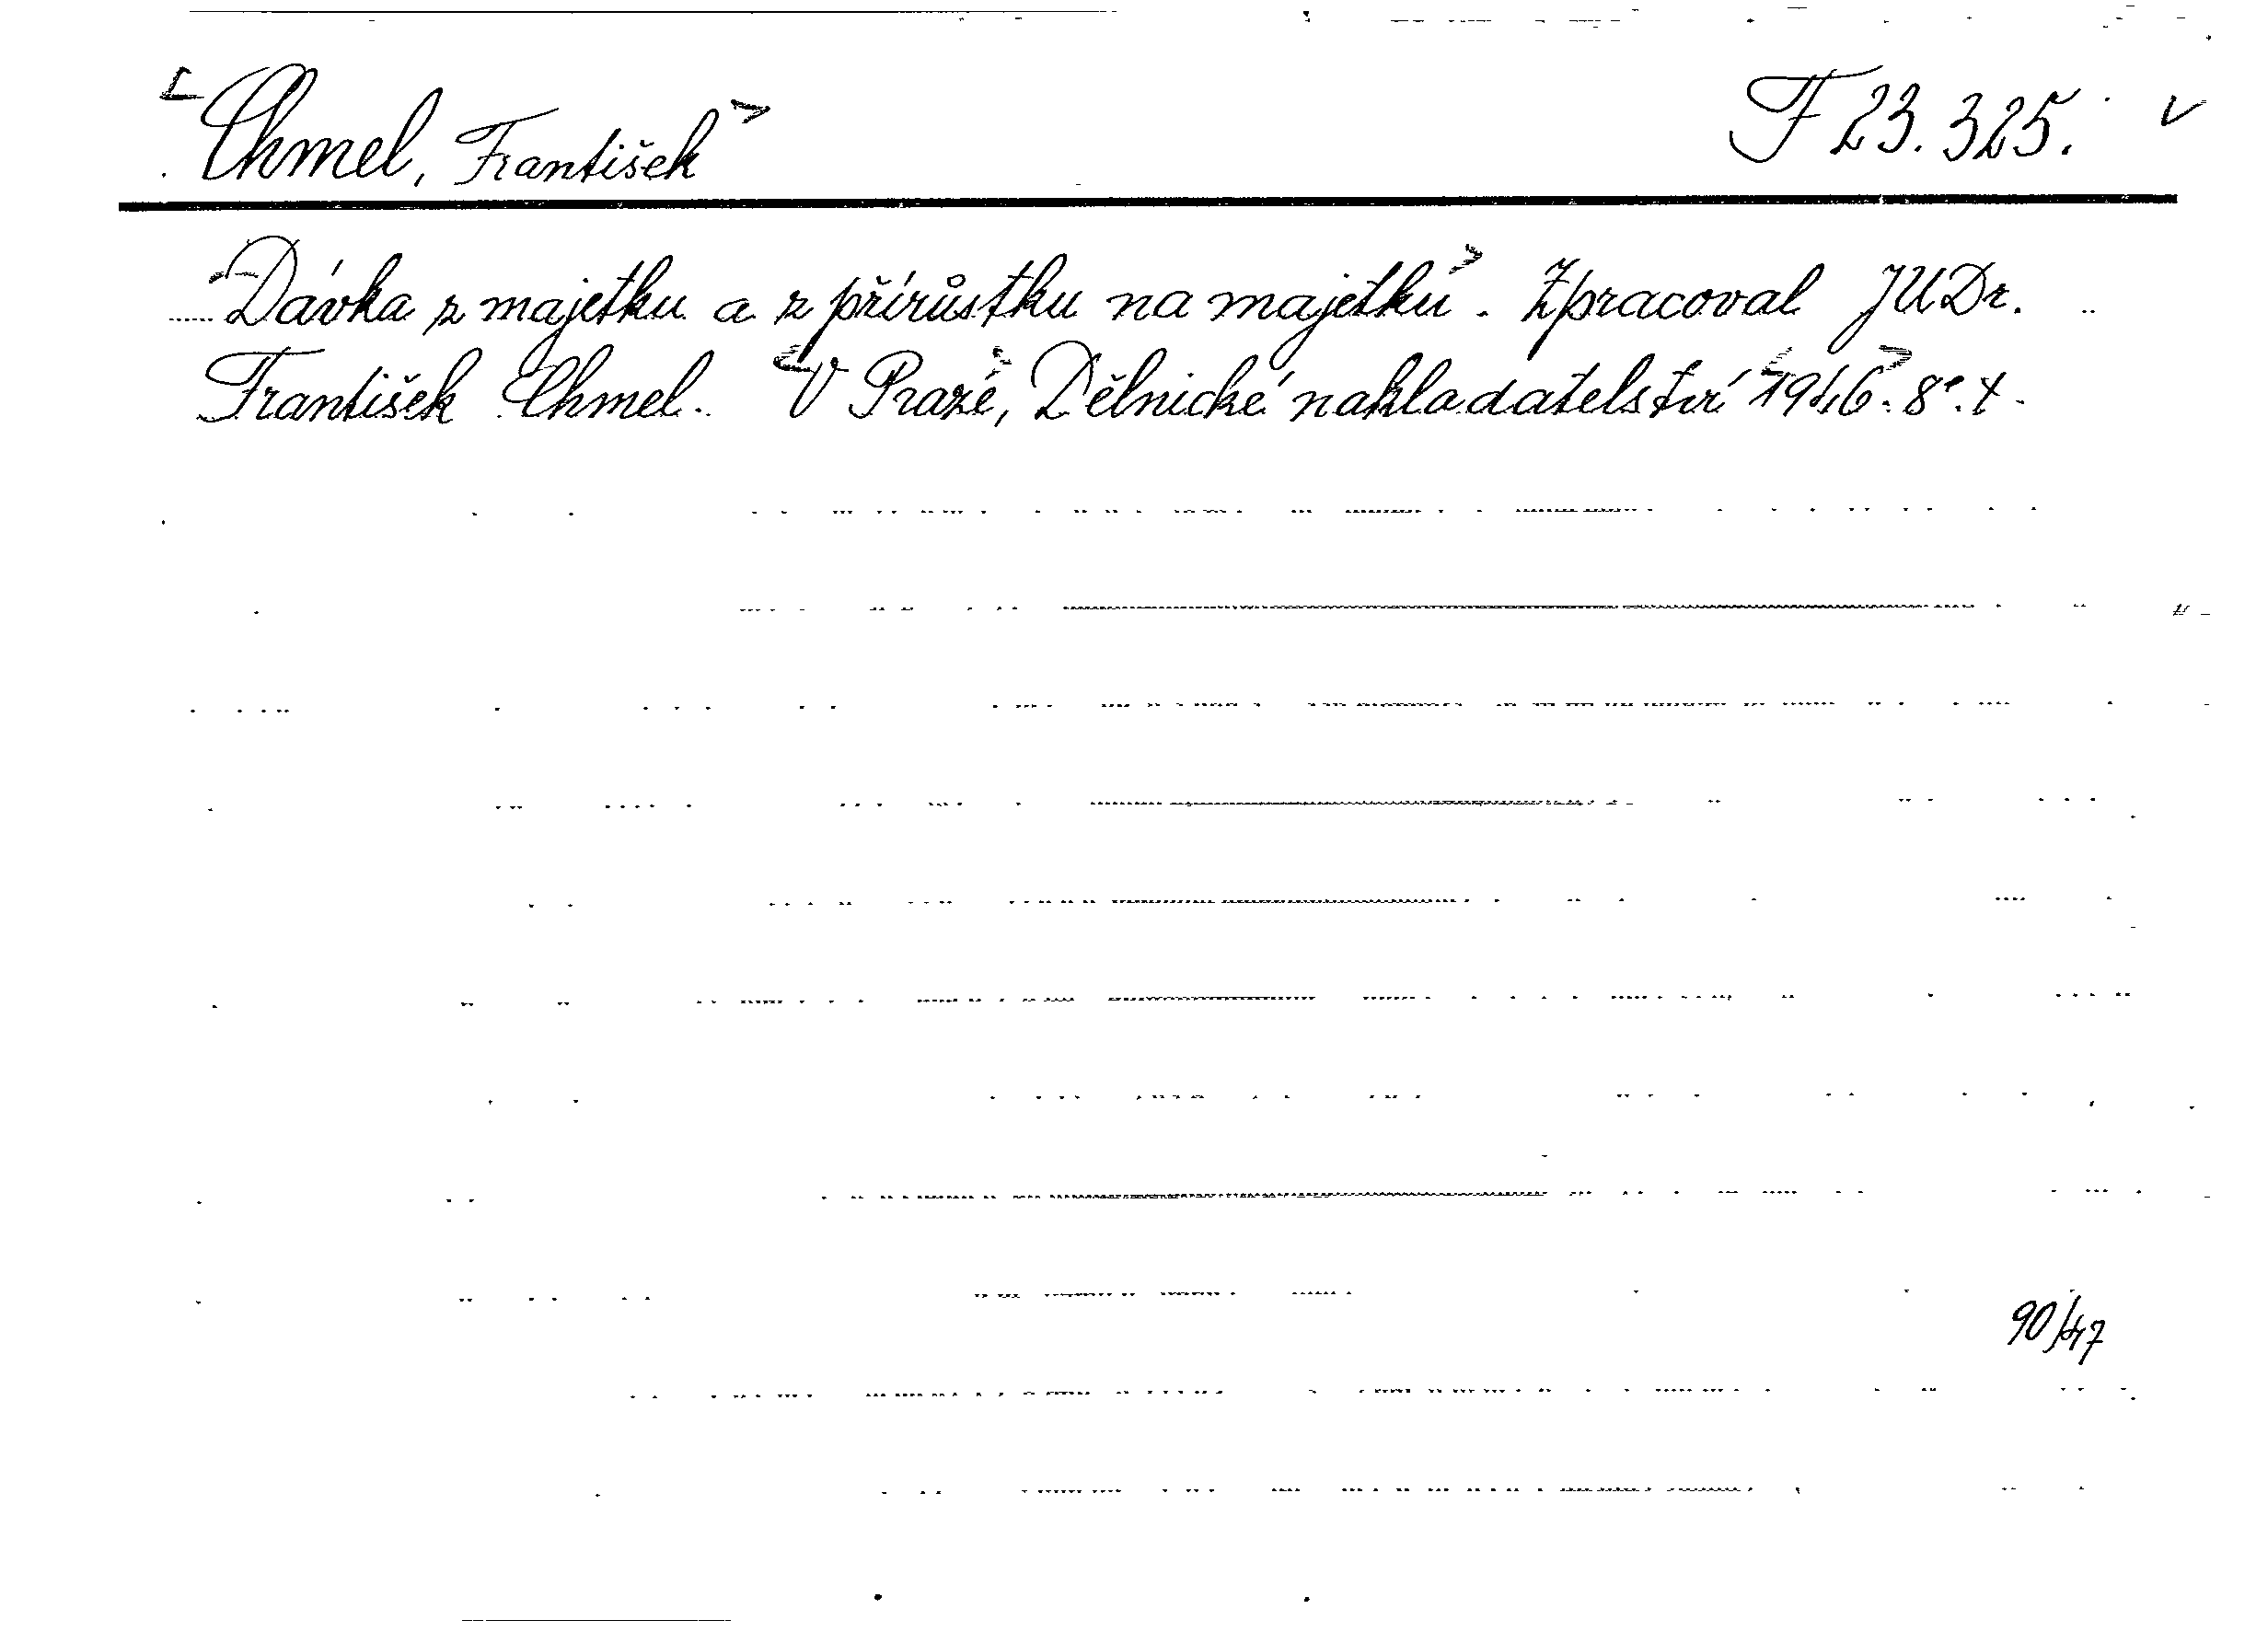 Chmel, František F 23.325.
Dávka z majetku a z přírůstku na majetku. Zpracoval JUDr.
František Chmel. V Praze, Dělnické nakladatelství 1946. 8°.
90/47